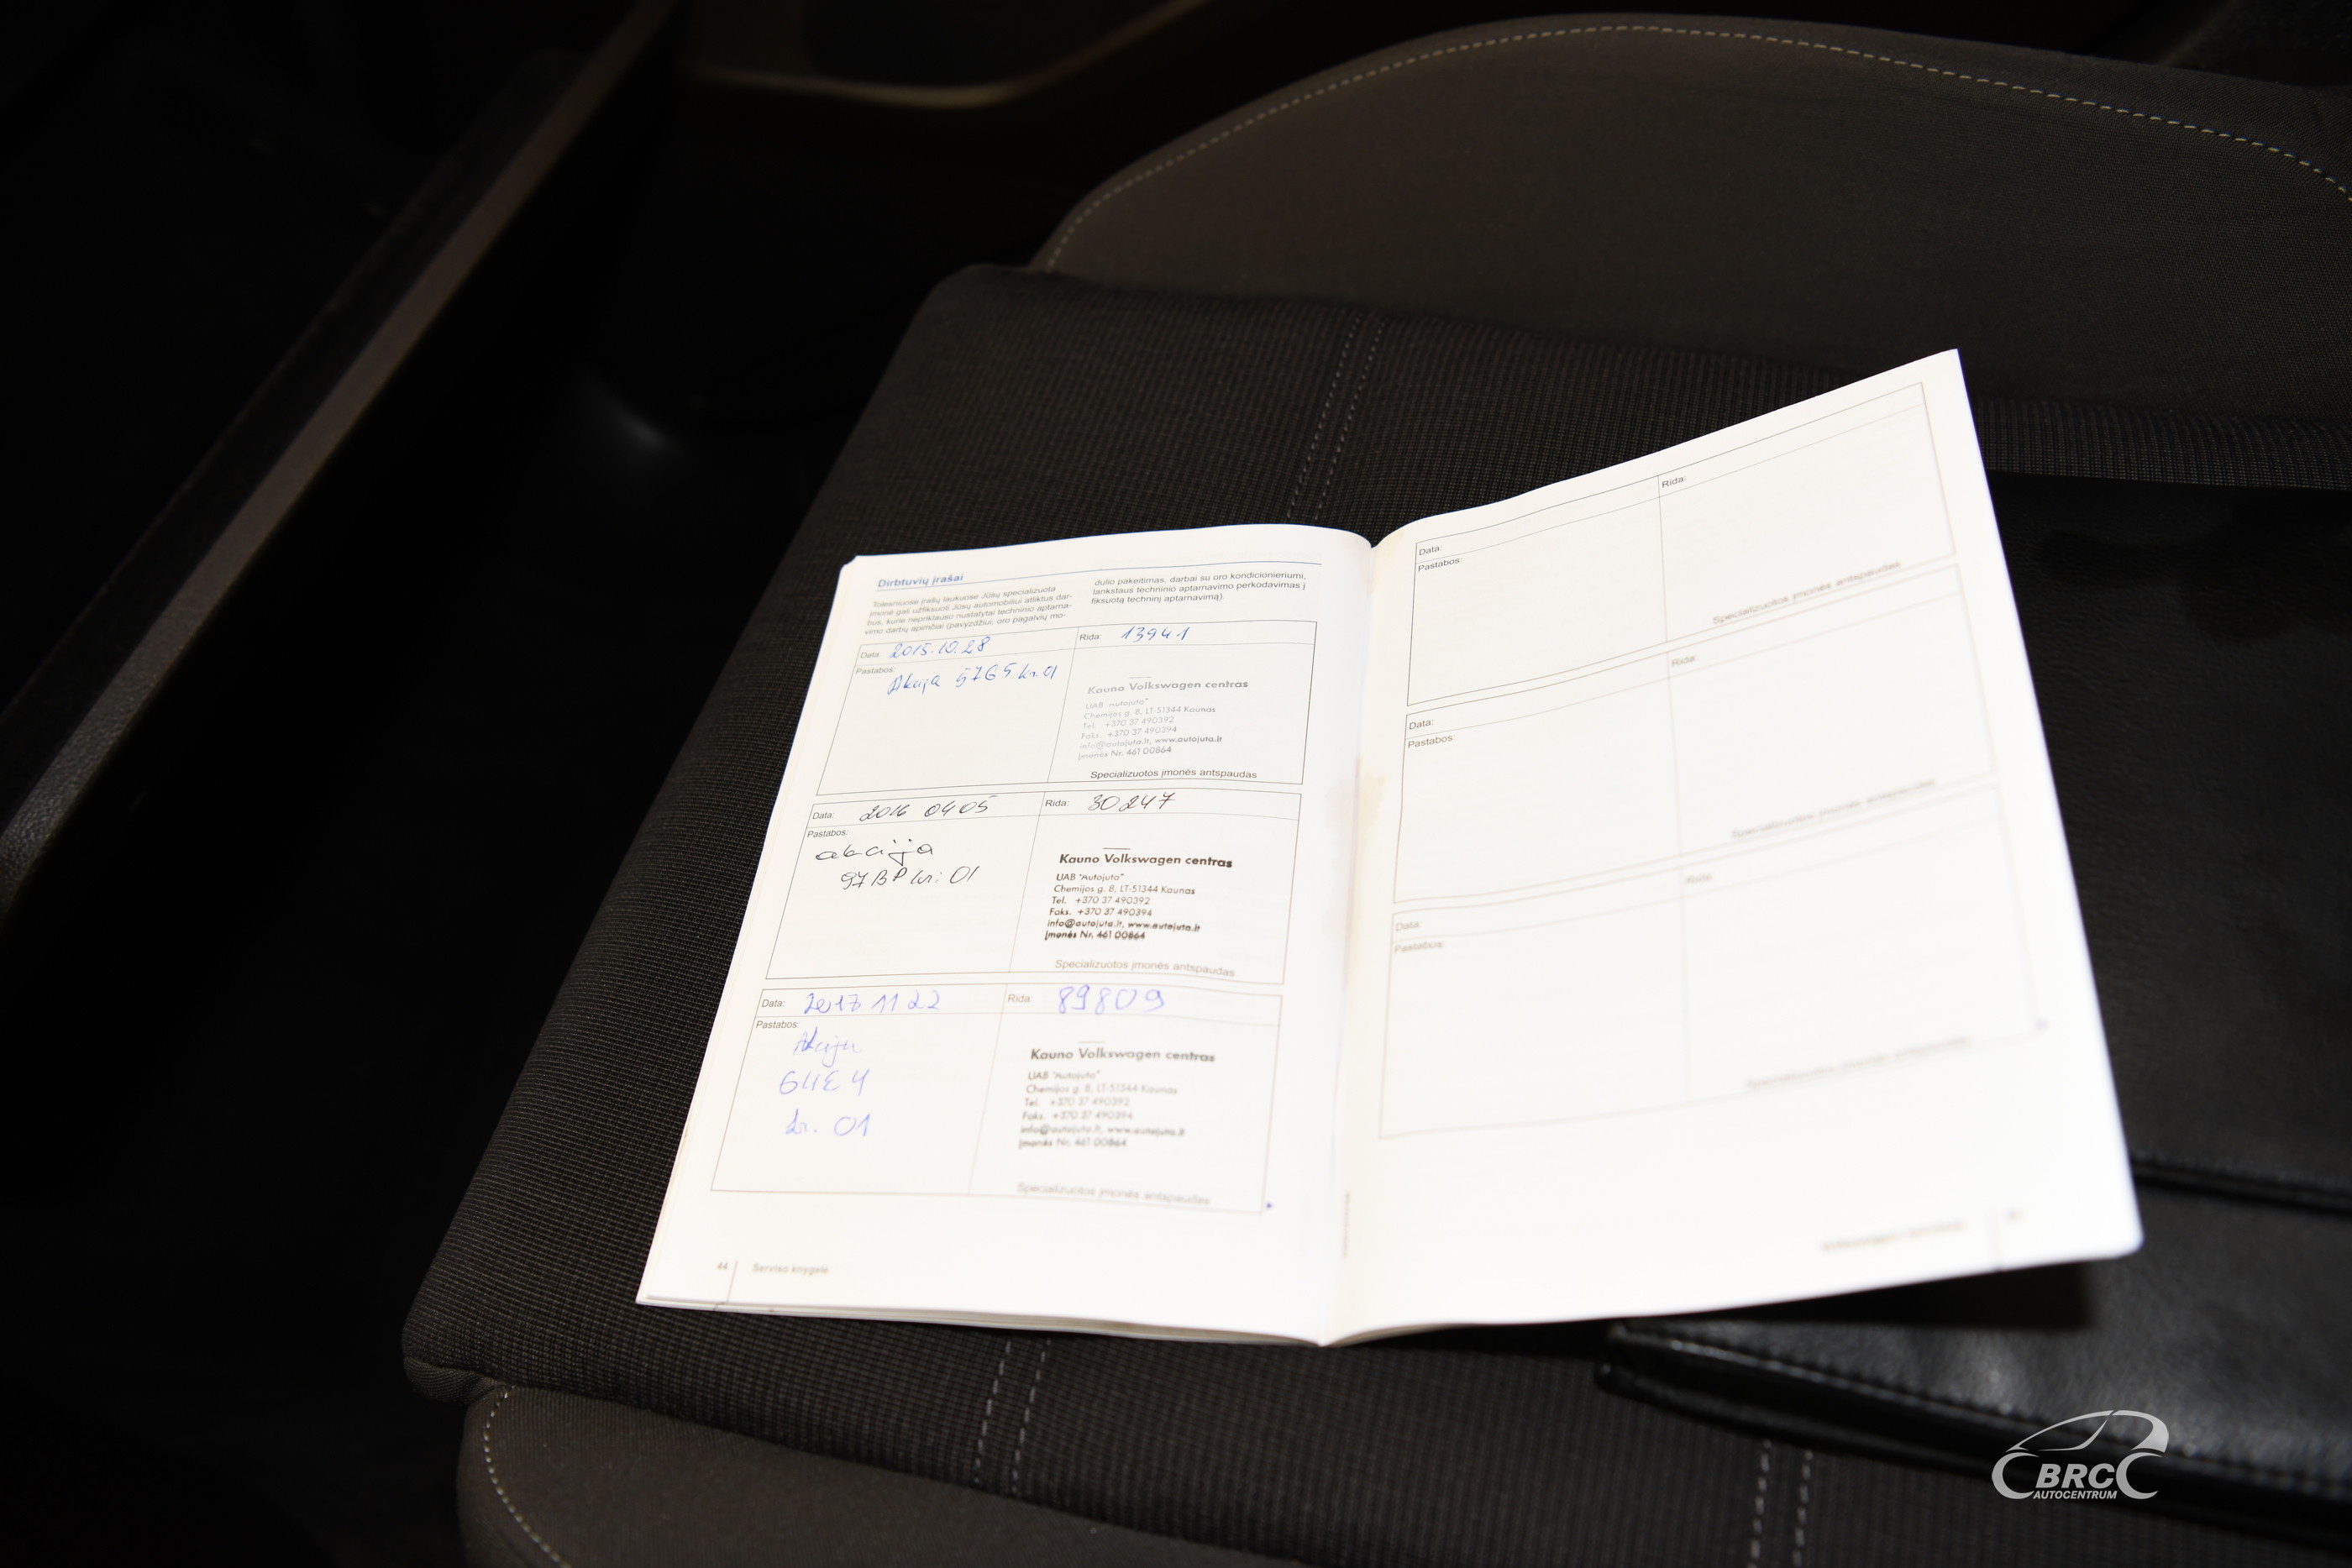 Dirbtuvių įrašai
Tolesniuose įrašų laukuose Jūsų specializuota
įmonė gali užfiksuoti Jūsų automobiliui atliktus dar-
bus, kurie nepriklauso nustatytai techninio aptarna-
vimo darbų apimčiai (pavyzdžiui, oro pagalvių mo-
dulio pakeitimas, darbai su oro kondicionieriumi,
lankstaus techninio aptarnavimo perkodavimas į
fiksuotą techninį aptarnavimą).
Data: 2015.10.28
Rida: 13941
Pastabos:
Akcija 5765 kr.01
Kauno Volkswagen centras
UAB "Autojuta"
Chemijos g. 8, LT-51344 Kaunas
Tel. +370 37 490392
Faks. +370 37 490394
info@autojuta.lt, www.autojuta.lt
Įmonės Nr. 461 00864
Specializuotos įmonės antspaudas
Data: 2016 04 05
Rida: 30247
Pastabos:
akcija
97BP kr: 01
Kauno Volkswagen centras
UAB "Autojuta"
Chemijos g. 8, LT-51344 Kaunas
Tel. +370 37 490392
Faks. +370 37 490394
info@autojuta.lt, www.autojuta.lt
Įmonės Nr. 461 00864
Specializuotos įmonės antspaudas
Data: 2017 11 22
Rida: 89809
Pastabos:
Akcija
kr. 01
Kauno Volkswagen centras
UAB "Autojuta"
Chemijos g. 8, LT-51344 Kaunas
Tel. +370 37 490392
Faks. +370 37 490394
info@autojuta.lt, www.autojuta.lt
Įmonės Nr. 461 00864
Specializuotos įmonės antspaudas
44 Serviso knygelė
Data:
Rida:
Pastabos:
Specializuotos įmonės antspaudas
Data:
Rida:
Pastabos:
Specializuotos įmonės antspaudas
Data:
Rida:
Pastabos:
Specializuotos įmonės antspaudas
BRC
AUTOCENTRUM